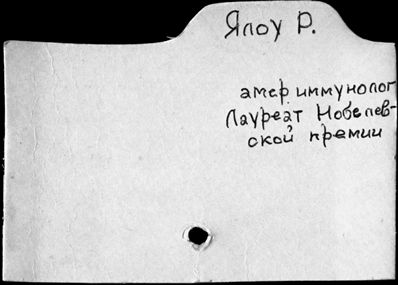 Ялоу Р.
амер иммунолог
Лауреат Нобелев-
ской премии